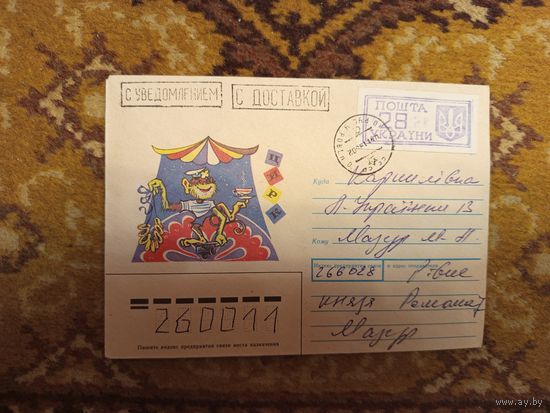 С УВЕДОМЛЕНИЕМ
С ДОСТАВКОЙ
ПОШТА
28
УКРАЇНИ
ЦИРК
Куда
Л. Українки 13
Кому Мазур М. П.
Индекс предприятия связи и адрес отправителя
266028 Рівне
князя
Мазур
260011
Пишите индекс предприятия связи места назначения
www.ay.by